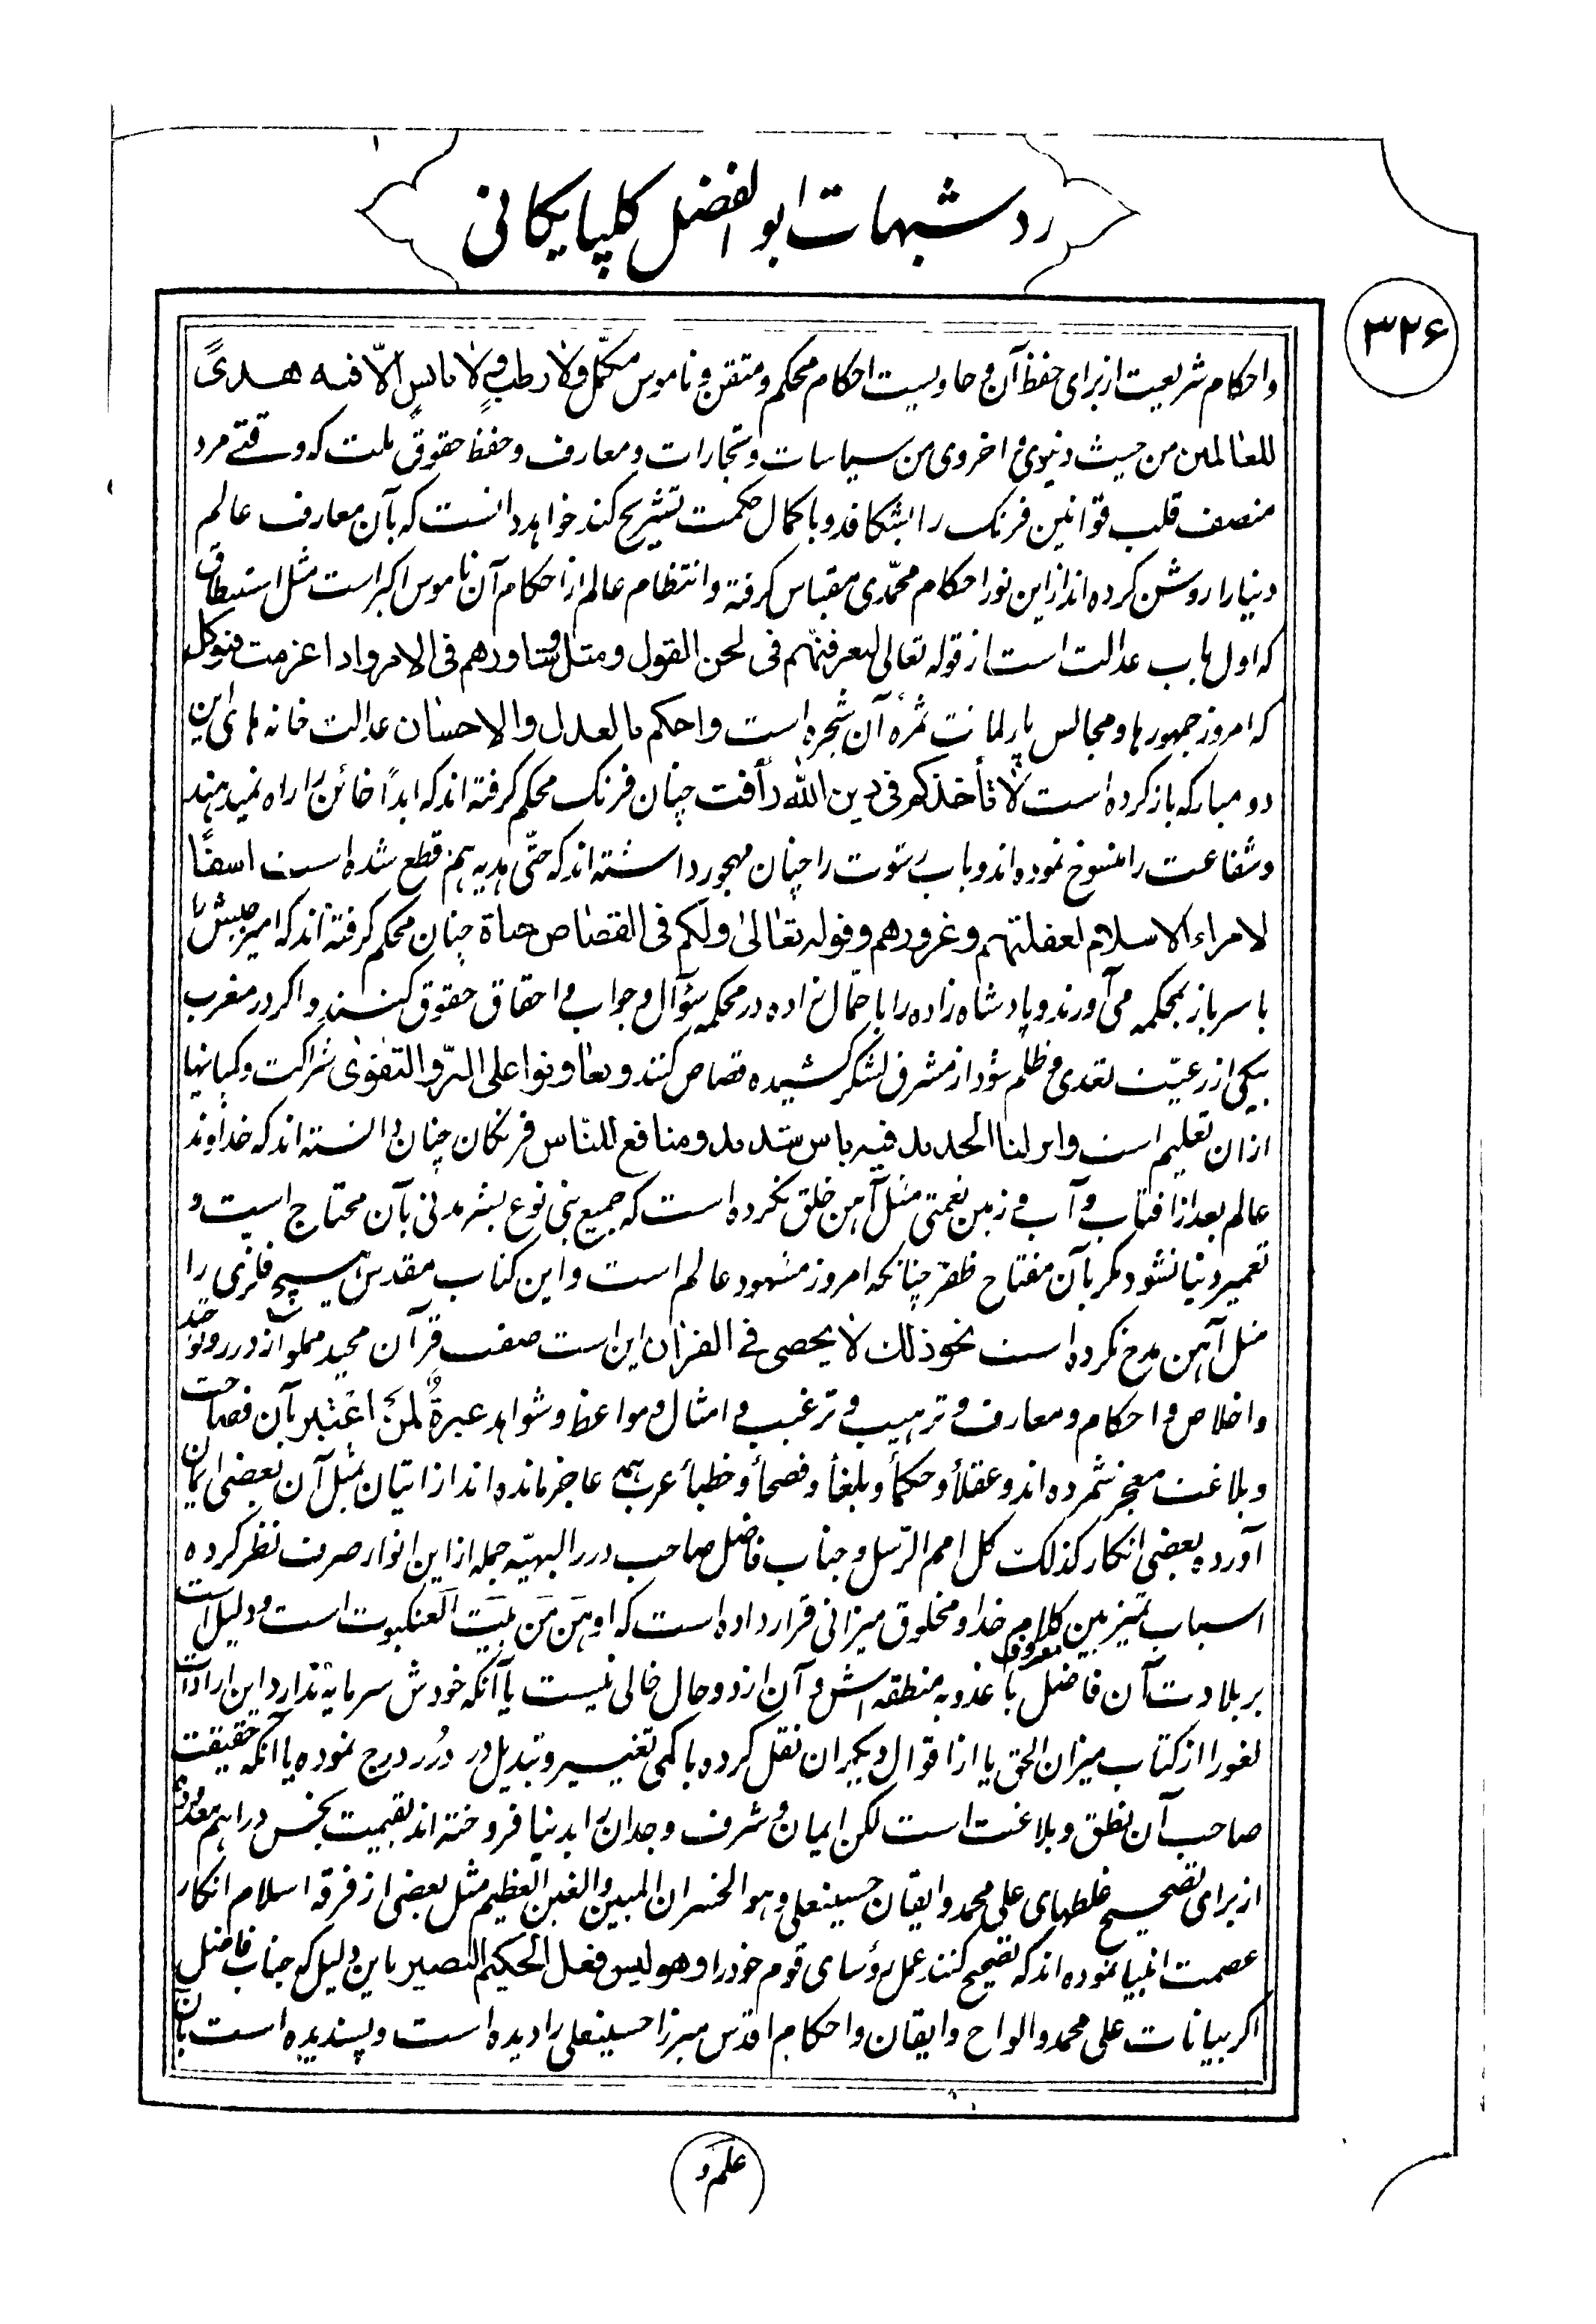 رد شبهات ابوالفضل کلپایکانی
۳۲۶
واحکام شریعت از برای حفظ آن و حاویست احکام محکم و متقن و ناموس مکمّل ولا رطبٍ ولا یابسٍ الّا فیه هدیً
للعالمین من حیث دنیوی و اخروی من سیاسات و تجارات و معارف و حفظ حقوق ملت که وقتے مرد
منصف قلب قوانین فرنک را بشکافد و با کمال حکمت تشریح کند خواهد دانست که بآن معارف عالم
دنیا را روشن کرده اند از این نور احکام محمّدی مقباس کرفته و انتظام عالم از احکام آن ناموس اکبر است مثل استنطاق
که اول باب عدالت است از قوله تعالی لتعرفنّهم فی لحن القول و مثل وشاورهم فی الامر واذا عزمت فتوکل
که امروز جمهورها و مجالس پارلمانت ثمرهٔ آن شجره است واحکم بالعدل والاحسان عدالت خانه های این
دو مبارکه باز کرده است لا تأخذکم فی دین الله رأفت چنان فرنک محکم کرفته اند که ابداً خائن را راه نمیدهند
و شفاعت را منسوخ نموده اند و باب رشوت را چنان مهجور داشته اند که حتّی هدیه هم قطع شده است اسفاً
لامراء الاسلام لغفلتهم وغرورهم وقوله تعالیٰ ولکم فی القصاص حیاة چنان محکم کرفته اند که امیر جیش را
با سرباز بمحکمه می آورند و پادشاه زاده را با حمّال زاده در محکمه سؤآل و جواب و احقاق حقوق کنند و اکر در مغرب
بیکی از رعیّت تعدی و ظلم شود از مشرق لشکر کشیده قصاص کنند وتعاونوا علی البرّ والتقوٰی شراکت و کمپانیها
از ان تعلیم است وانزلنا الحدید فیه باس شدید ومنافع للنّاس فرنکان چنان دانسته اند که خداوند
عالم بعد از افتاب و آب و زمین نعمتی مثل آهن خلق نکرده است که جمیع بنی نوع بشر مدنی بآن محتاج است و
تعمیر دنیا نشود مکر بآن مفتاح ظفر چنانکه امروز مشهود عالم است و این کتاب مقدس هیچ فلزی را
مثل آهن مدح نکرده است نحو ذلک لا یحصی فے القرٰان این است صفت قرآن مجید مملو از درر و توحید
و اخلاص و احکام و معارف و ترهیب و ترغیب و امثال و مواعظ و شواهد عبرةٌ لمن اعتبر بآن فصاحت
و بلاغت معجز شمرده اند و عقلأ و حکمأ و بلغأ و فصحأ و خطبأ عرب همه عاجز مانده اند از اتیان بمثل آن بعضی ایمان
آورده بعضی انکار کذلک کل امم الرّسل و جناب فاضل صاحب درر البهیّه جمله از این انوار صرف نظر کرده
اسباب تمیز بین کلام خدا و مخلوق میزانی قرار داده است که اوهن من بیت العنکبوت است و دلیل است
بر بلادت آن فاضل با معروف عذوبه منطقه اش و آن از دو حال خالی نیست یا آنکه خودش سرمایه ندارد این ارادآت
لغو را از کتاب میزان الحق یا از اقوال دیکران نقل کرده با کمی تغییر و تبدیل در دُرر درج نموده یا آنکه حقیقت
صاحب آن نطق و بلاغت است لکن ایمان و شرف وجدان را بدنیا فروخته اند بقیمت بخس دراهم معدوده
از برای تصحیح غلطهای علی محمد و ایقان حسینعلی و هو الخسران المبین و الغبن العظیم مثل بعضی از فرقه اسلام انکار
عصمت انبیا نموده اند که تصحیح کنند عمل رؤسای قوم خود را وهو لیس فعل الحکیم البصیر باین دلیل که جناب فاضل
اکر بیانات علی محمد و الواح و ایقان و احکام اقدس میرزا حسینعلی را دیده است و پسندیده است بآن
علم و